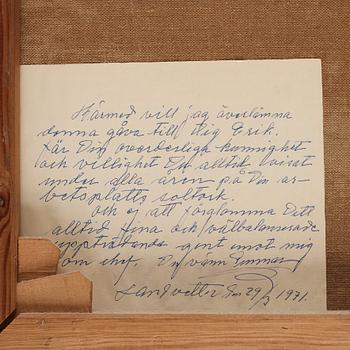 Härmed vill jag överlämna
denna gåva till Dig Erik.
för Din ovärderliga kunnighet
och villighet Du alltid visat
under alla åren på Din ar-
betsplats
Och ej att förglömma Ditt
alltid fina och välbalanserade
uppträdande gent emot mig
om chef. Din vänn
Landvetter den 29/3 1971.